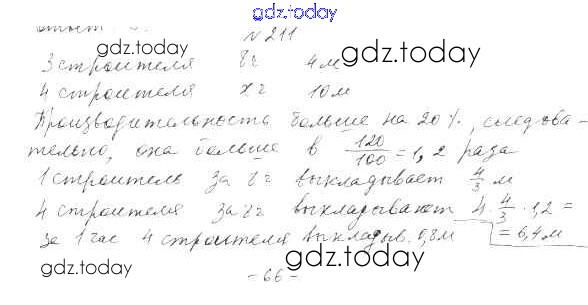 gdz.today
gdz.today
№ 211
gdz.today
3 строителя 8 г 4 м
4 строителя x г 10 м
Производительность больше на 20 %, следова-
тельно, она больше в 120/100 = 1,2 раза
gdz.today
1 строитель за 8 г выкладывает 4/3 м
4 строителя за 8 г выкладывают 4 · 4/3 · 1,2 =
= 6,4 м
за 1 час 4 строителя выкладыв. 0,8 м
gdz.today
gdz.today
- 66 -